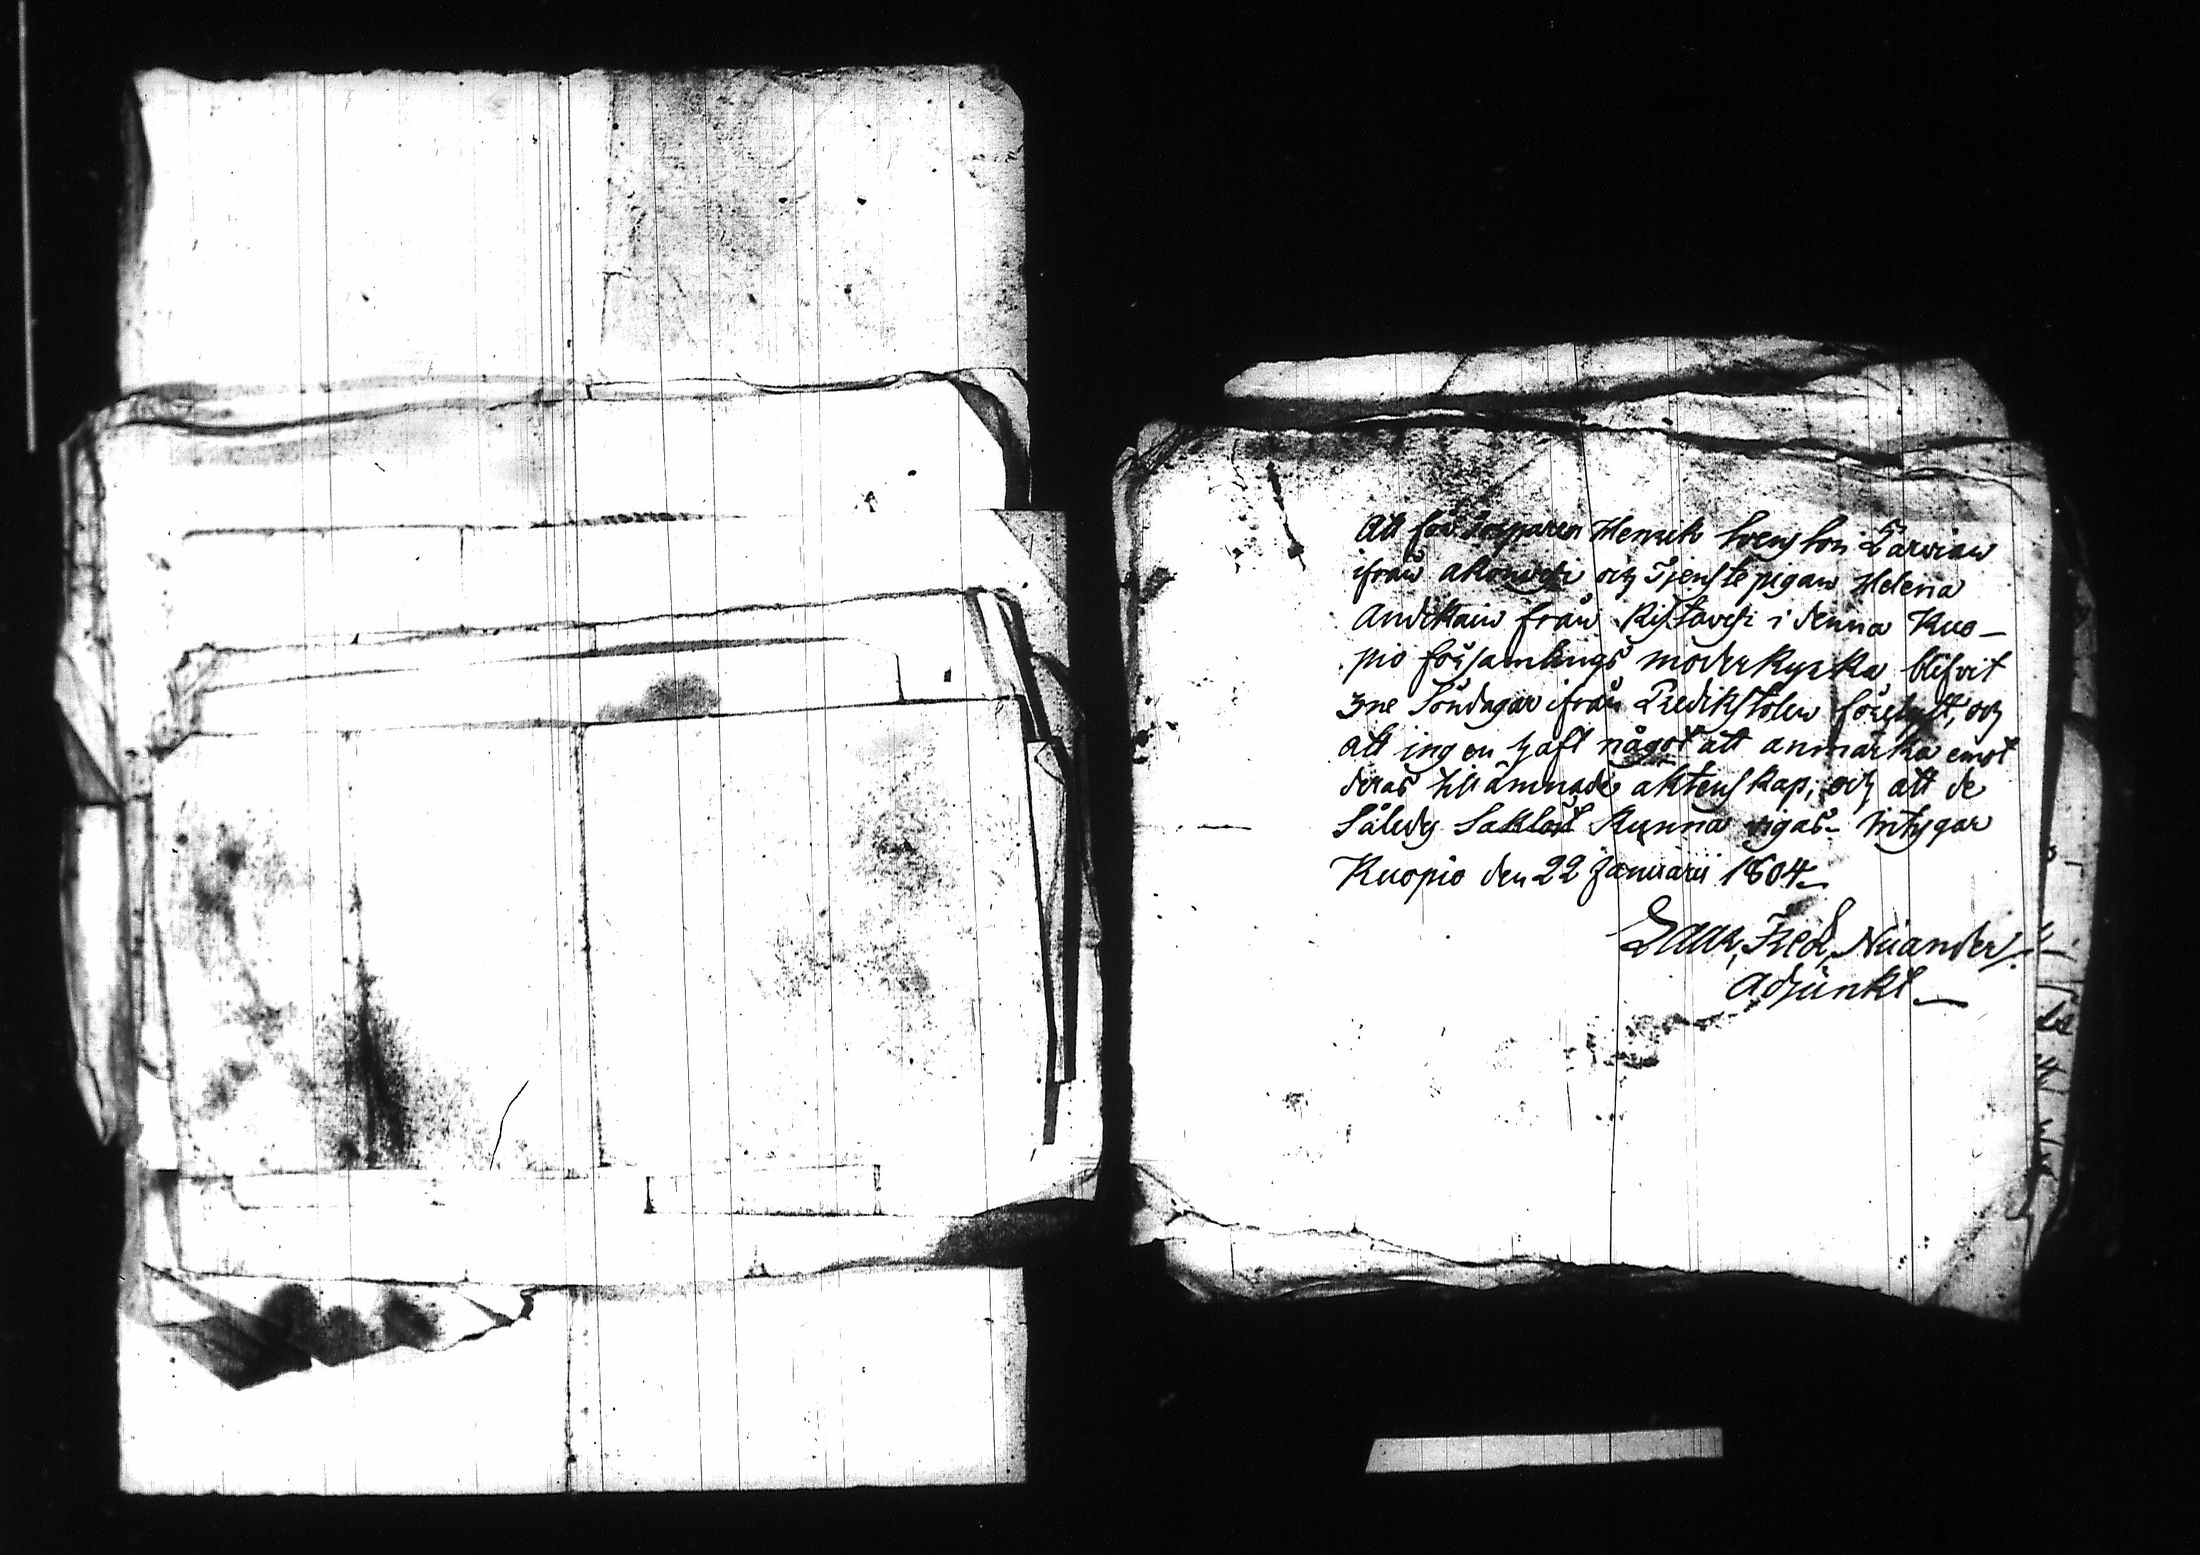 Att för Torpparen Henrik Svensson Särviain
ifrån akonvesi och Tjenstepigan Helena
Andikain från Ristavesi i denna Kuo-
pio församlings moderkyrka blifvit
3ne Söndagar ifrån Predikstolen förelyst, och
att ingen haft något att anmärka emot
deras tillämnade äktenskap, och att de
Således Saklöst kunna vigas- intygar
Kuopio den 22 Januarii 1804
Isaac, Fred, Niiander/.
Adjunkt